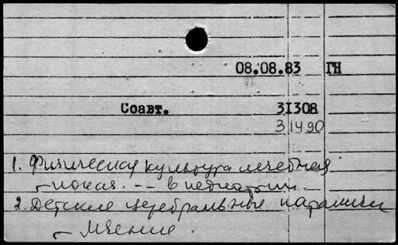 08.08.83 ГН
Соавт. 31308
31490
1. Физическая культура лечебная
- показ. -- в педиатрии
2. Детские церебральные параличи
- лечение.